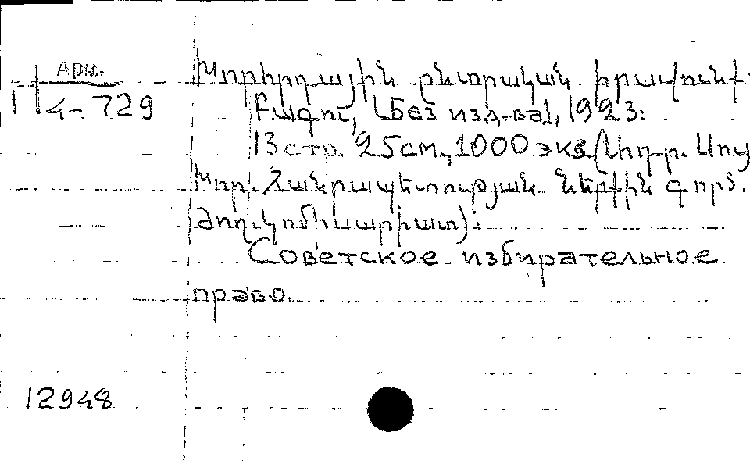 Арм.
4-729
Խորհրդային ընտրական իրավունք.
Բագու, [без изд-ва], 1923:
13 стр. 25 см, 1000 экз. (Ադր. Սոց
Խոր. Հանրապետության Ներքին գործ.
Ժող. կոմիսարիատ):
Советское избирательное
право.
12948